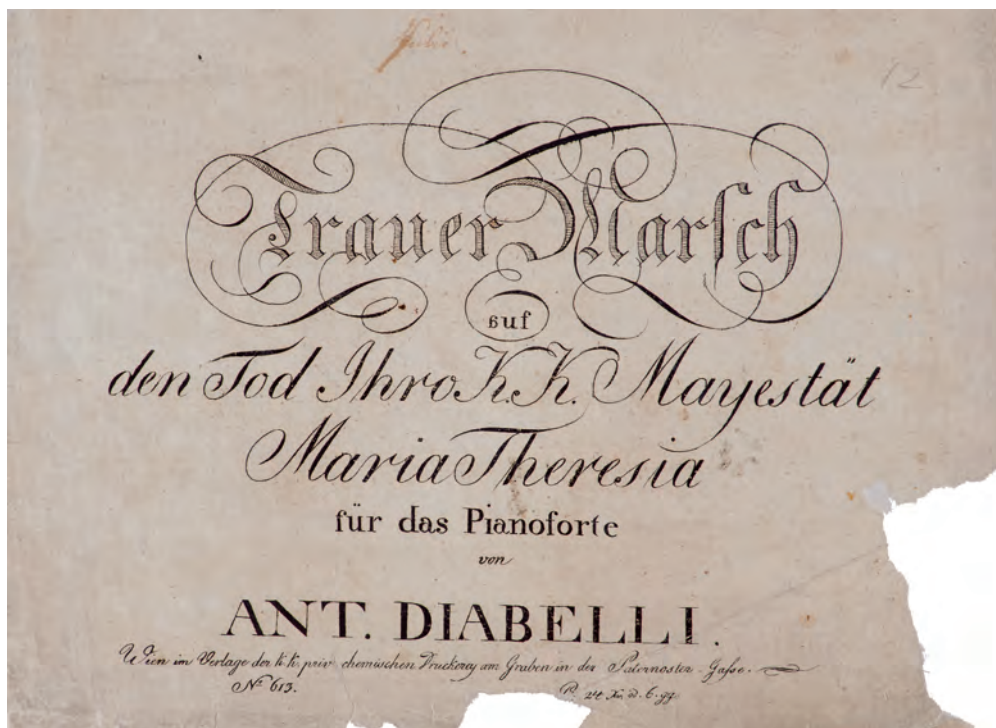 12
Trauer Marsch
auf
den Tod Ihro K.K. Mayestät
Maria Theresia
für das Pianoforte
von
ANT. DIABELLI.
Wien im Verlage der k:k: priv. chemischen Druckerey am Graben in der Paternoster-Gasse.
Nº 613.
P. 24 Xr. d. 6. gg